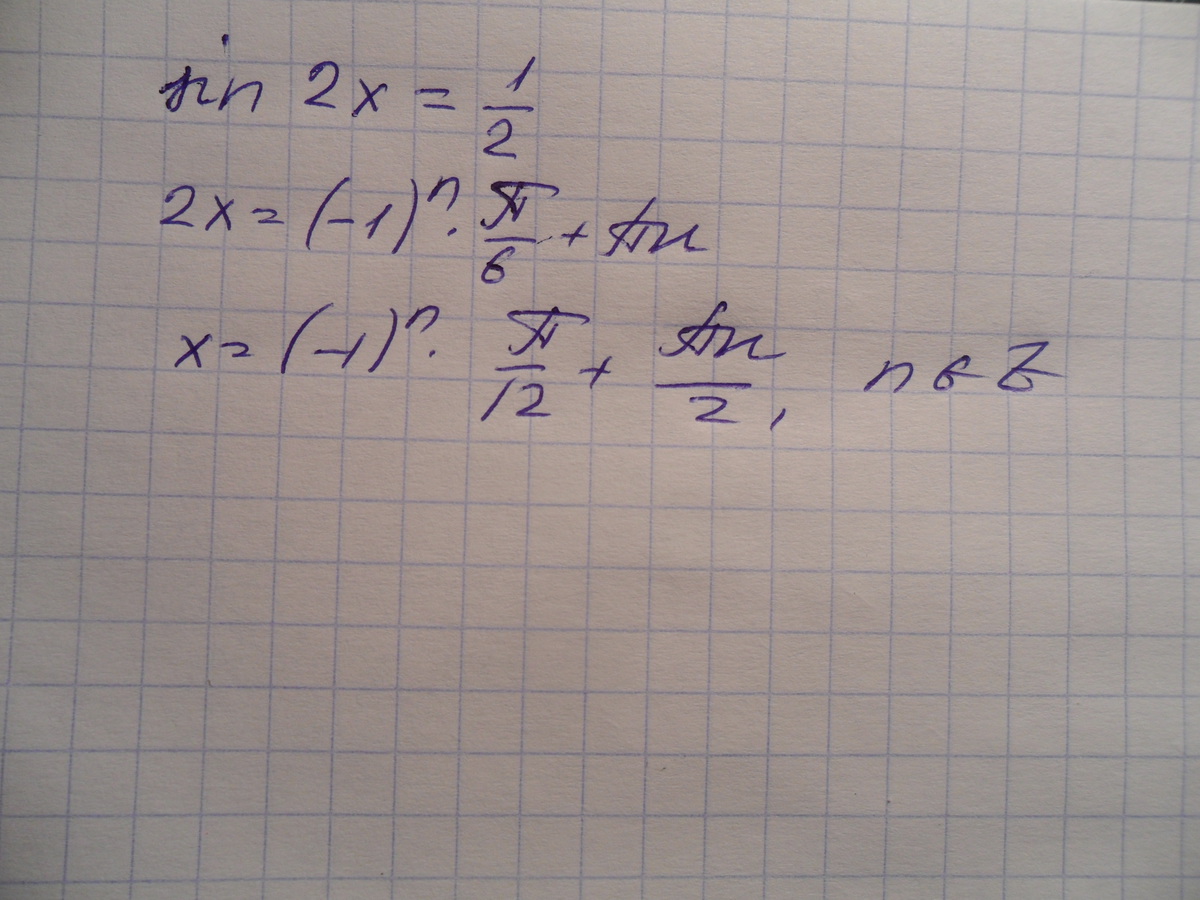 sin 2x = 1/2
2x = (-1)ⁿ · π/6 + πn
x = (-1)ⁿ · π/12 + πn/2, n ∈ Z